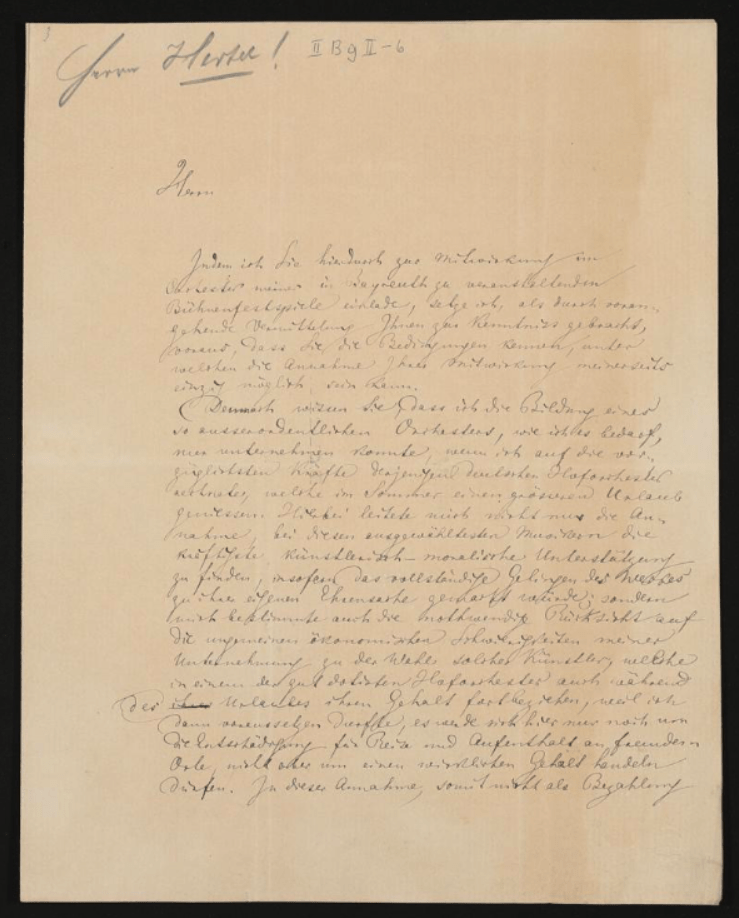 Herrn Hertel! II B g II-6
Herrn
Indem ich Sie hierdurch zur Mitwirkung im
Orchester meiner in Bayreuth zu veranstaltenden
Bühnenfestspiele einlade, setze ich, als durch voran-
gehende Vermittelung Ihnen zur Kenntniss gebracht,
voraus, dass Sie die Bedingungen kennen, unter
welchen die Annahme Ihrer Mitwirkung meinerseits
einzig möglich sein kann.
Demnach wissen Sie, dass ich die Bildung eines
so ausserordentlichen Orchesters, wie ich es bedarf,
nur unternehmen konnte, wenn ich auf die vor-
züglichsten Kräfte derjenigen deutschen Hoforchester
rechnete, welche im Sommer einen grösseren Urlaub
geniessen. Hierbei leitete mich nicht nur die An-
nahme, bei diesen ausgewähltesten Musikern die
kräftigste künstlerisch-moralische Unterstützung
zu finden, insofern das vollständige Gelingen des Werkes
zu ihrer eigenen Ehrensache gemacht würde; sondern
mich bestimmte auch die nothwendige Rücksicht auf
die ungemeinen ökonomischen Schwierigkeiten meiner
Unternehmung zu der Wahl solcher Künstler, welche
in einem der gut dotirten Hoforchester auch während
des ihres Urlaubes ihren Gehalt fortbeziehen, weil ich
dann voraussetzen durfte, es werde sich hier nur noch um
die Entschädigung für Reise und Aufenthalt an fremdem
Orte, nicht aber um einen wirklichen Gehalt handeln
dürfen. In dieser Annahme, somit nicht als Bezahlung